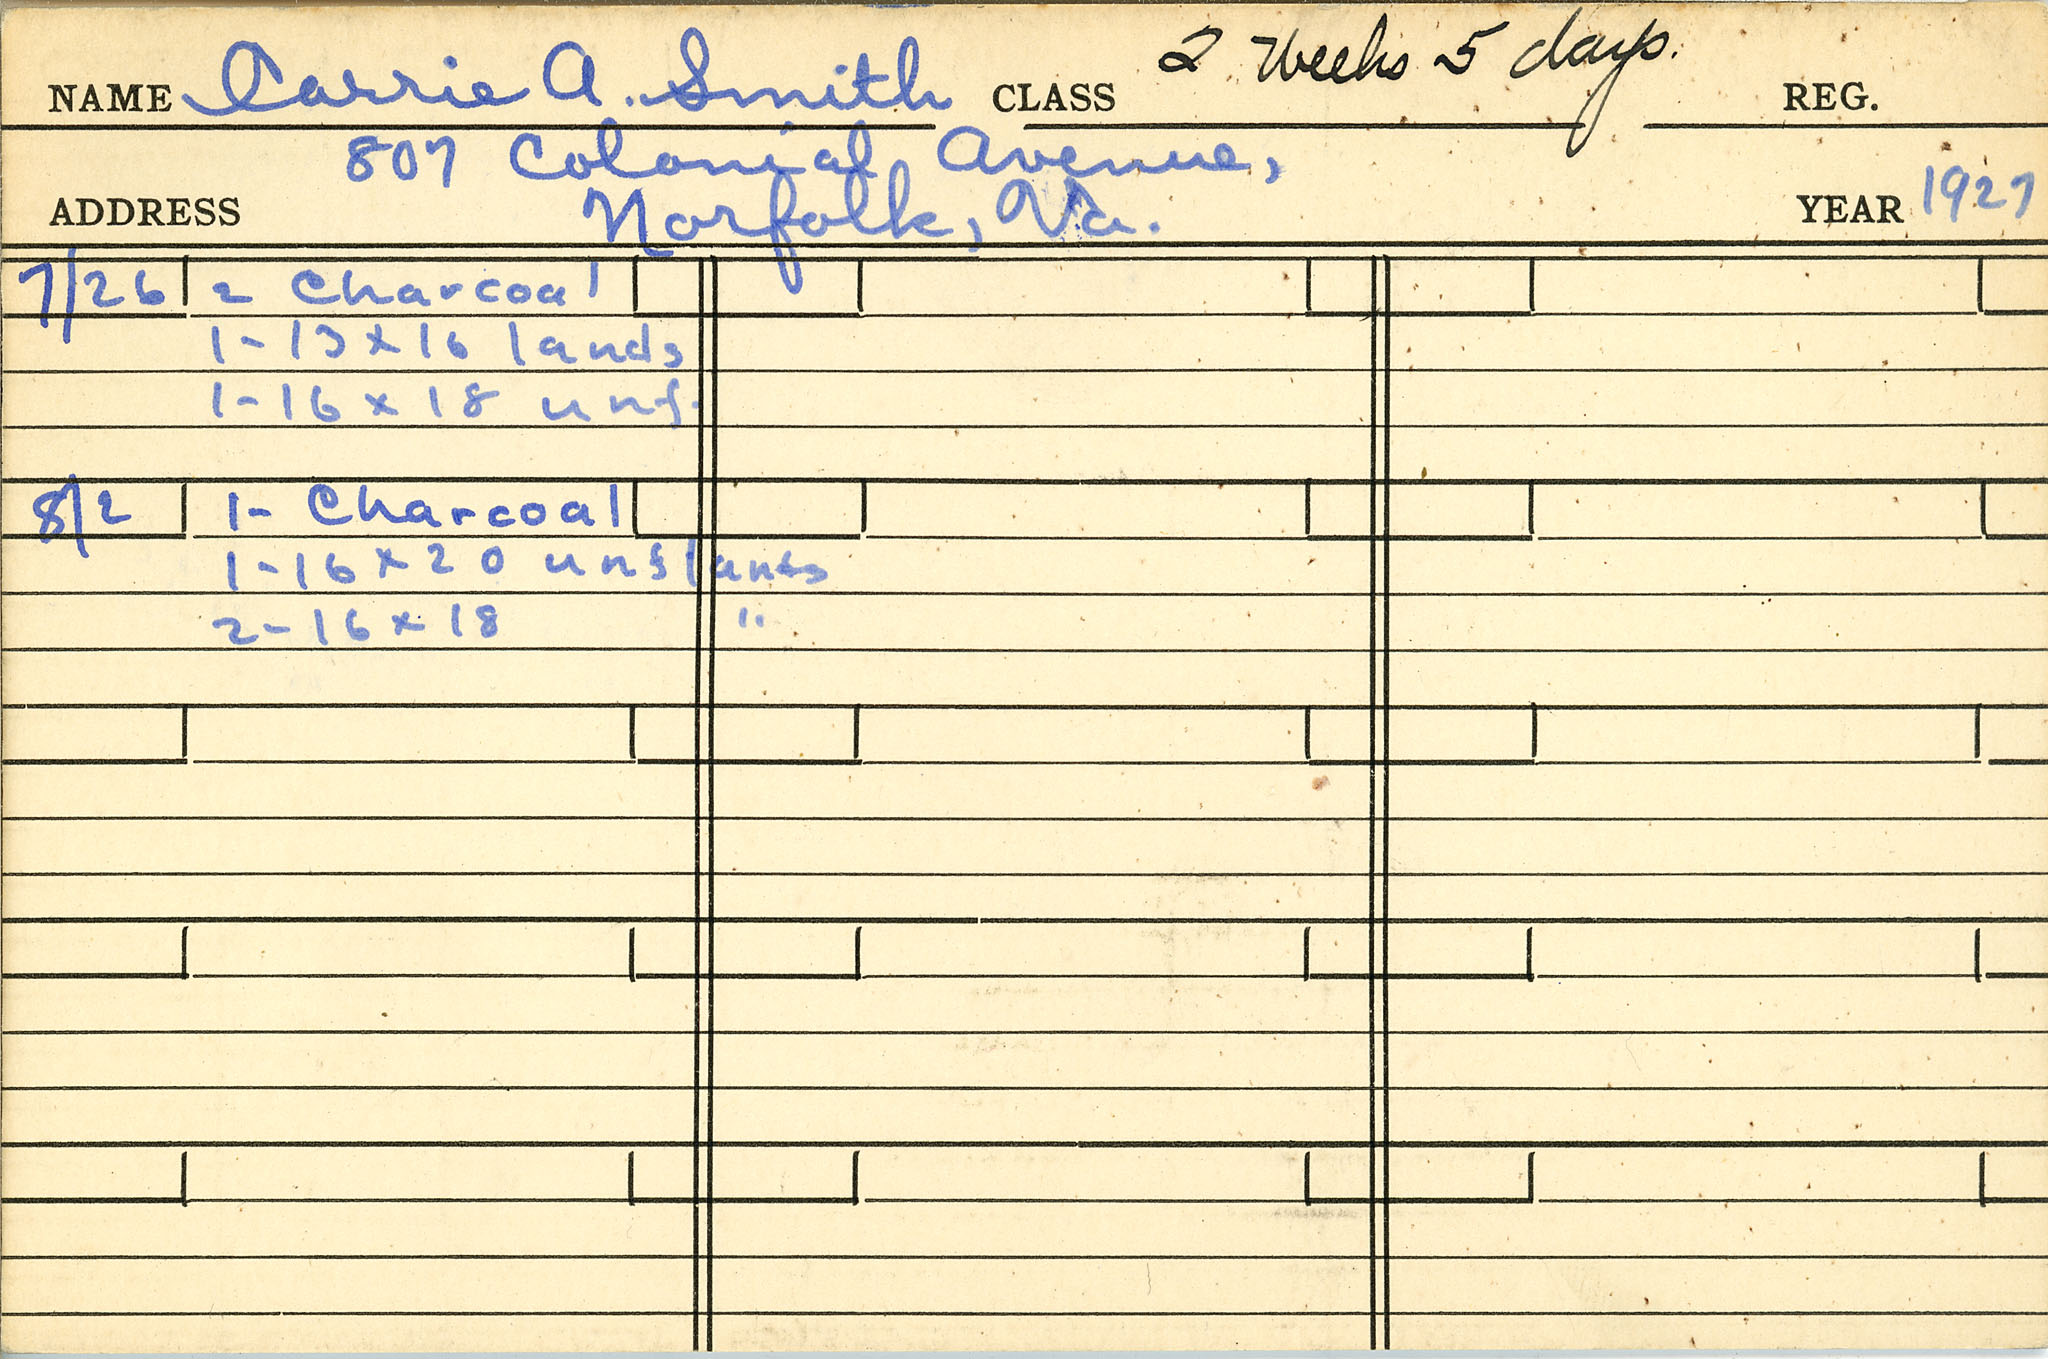 NAME Carrie A. Smith CLASS 2 Weeks 5 days. REG.
807 Colonial Avenue,
ADDRESS Norfolk, Va. YEAR 1927
7/26 2 Charcoal
1-13x16 lands
1-16x18 unf.
8/2 1- Charcoal
1-16x20 unslands
2-16x18 "